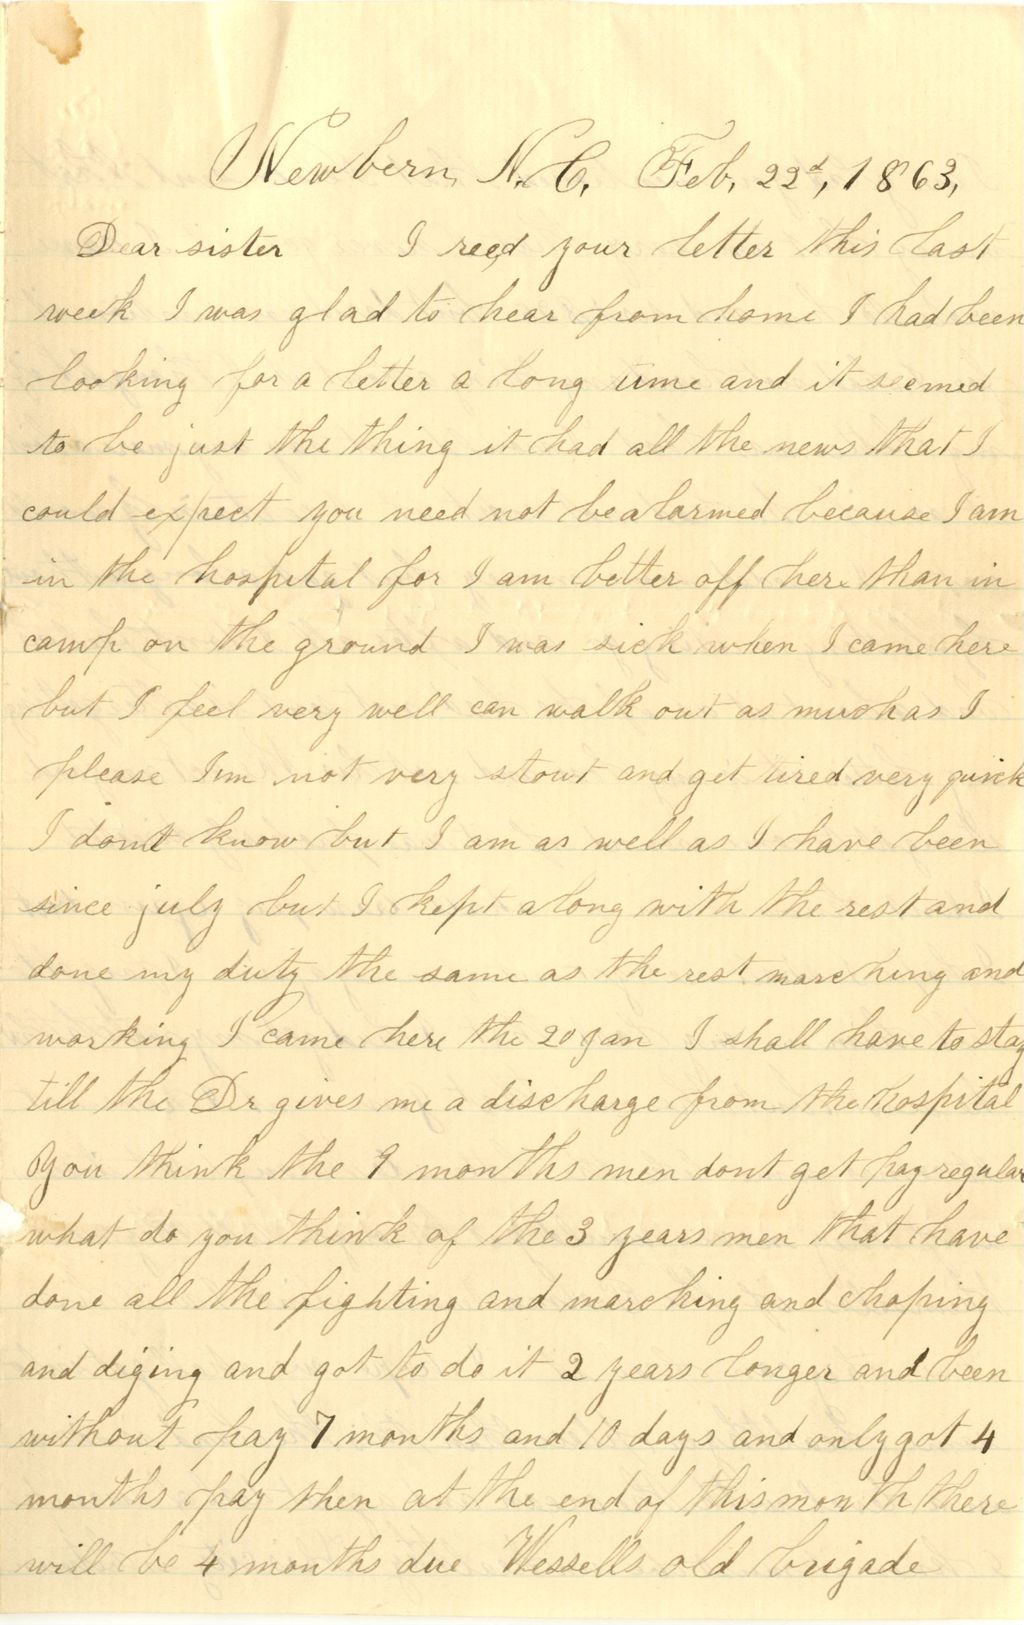 Newbern, N.C. Feb. 22d, 1863,
Dear sister I recd your letter this last
week I was glad to hear from home I had been
looking for a letter a long time and it seemed
to be just the thing it had all the news that I
could expect you need not be alarmed because I am
in the hospital for I am better off here than in
camp on the ground I was sick when I came here
but I feel very well can walk out as much as I
please Im not very stout and get tired very quick
I dont know but I am as well as I have been
since july but I kept along with the rest and
done my duty the same as the rest marching and
working I came here the 20 Jan I shall have to stay
till the Dr gives me a discharge from the hospital
You think the 9 months men dont get pay regular
what do you think of the 3 years men that have
done all the fighting and marching and choping
and diging and got to do it 2 years longer and been
without pay 7 months and 10 days and only got 4
months pay then at the end of this month there
will be 4 months due Wessells old brigade